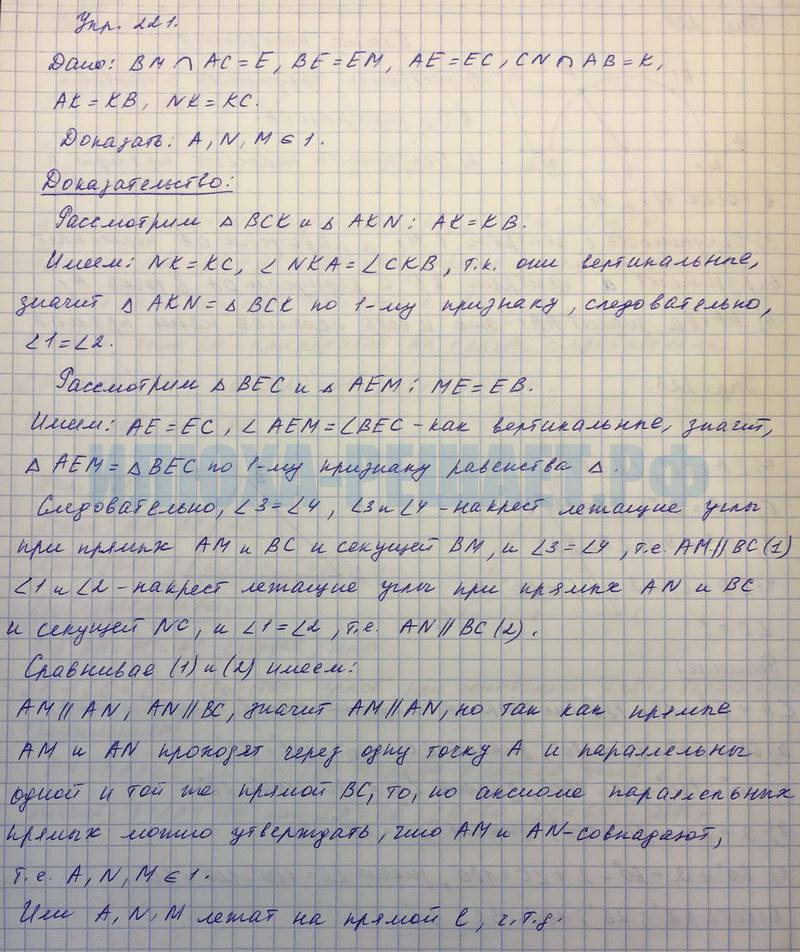 Упр. 221.
Дано: BM ∩ AC = E, BE = EM, AE = EC, CN ∩ AB = K,
AK = KB, NK = KC.
Доказать: A, N, M ∈ 1.
Доказательство:
Рассмотрим △ BCK и △ AKN: AK = KB.
Имеем: NK = KC, ∠ NKA = ∠CKB, т.к. они вертикальные,
значит △ AKN = △ BCK по 1-му признаку, следовательно,
∠1 = ∠2.
Рассмотрим △ BEC и △ AEM: ME = EB.
Имеем: AE = EC, ∠ AEM = ∠BEC - как вертикальные, значит,
△ AEM = △ BEC по 1-му признаку равенства △.
Следовательно, ∠3 = ∠4, ∠3 и ∠4 - накрест лежащие углы
при прямых AM и BC и секущей BM, и ∠3 = ∠4, т.е. AM || BC (1)
∠1 и ∠2 - накрест лежащие углы при прямых AN и BC
и секущей NC, и ∠1 = ∠2, т.е. AN || BC (2).
Сравнивае (1) и (2) имеем:
AM || AN, AN || BC, значит AM || AN, но так как прямые
AM и AN проходят через одну точку A и параллельны
одной и той же прямой BC, то, по аксиоме параллельных
прямых можно утверждать, что AM и AN - совпадают,
т.е. A, N, M ∈ 1.
Или A, N, M лежат на прямой l, ч.т.д.